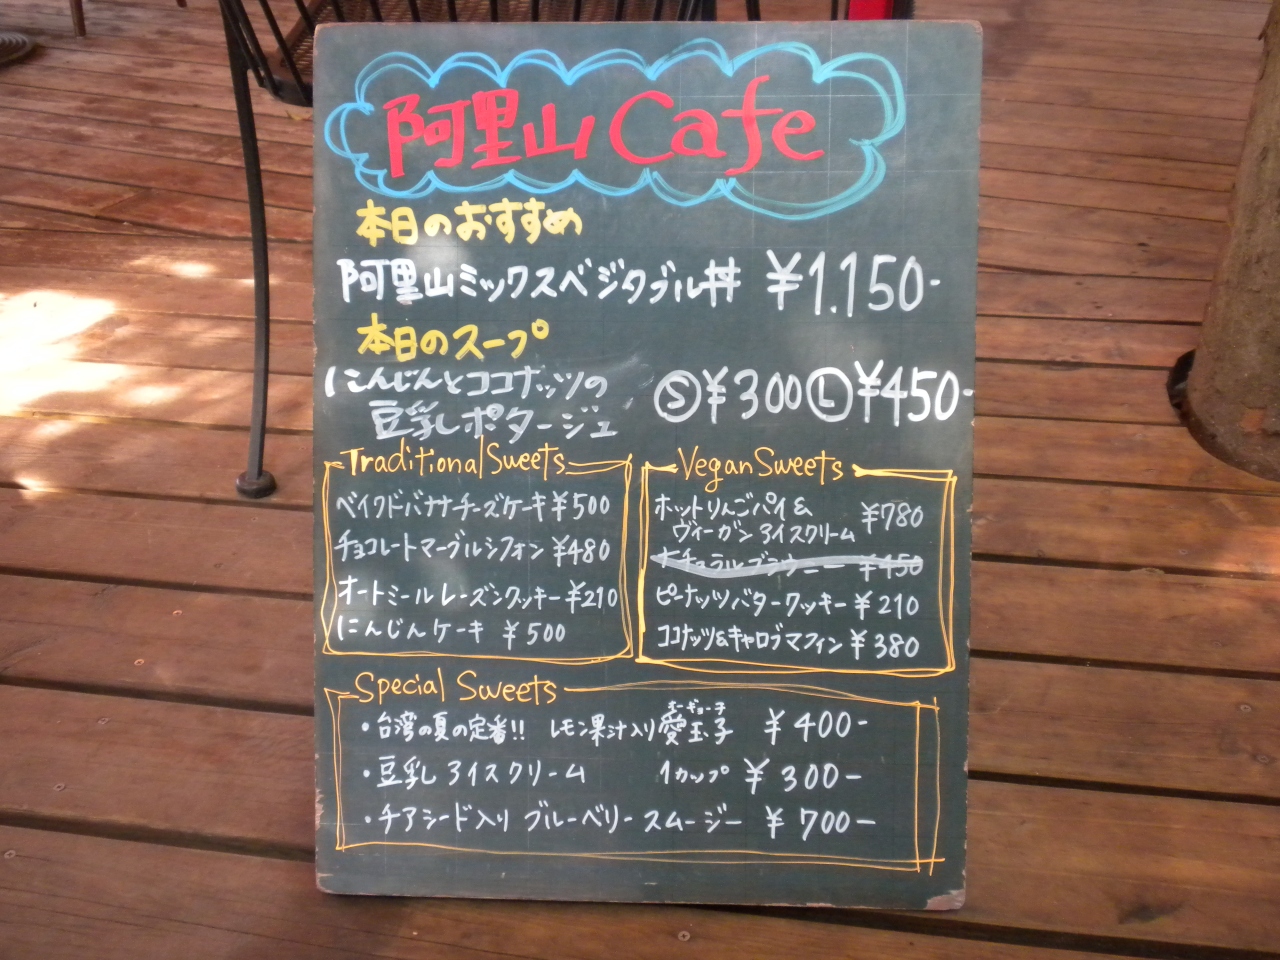 阿里山 Cafe
本日のおすすめ
阿里山ミックスベジタブル丼 ¥1.150-
本日のスープ
にんじんとココナッツの
豆乳ポタージュ Ⓢ¥300 Ⓛ¥450-
Traditional Sweets
ベイクドバナナチーズケーキ ¥500
チョコレートマーブルシフォン ¥480
オートミールレーズンクッキー ¥210
にんじんケーキ ¥500
Vegan Sweets
ホットりんごパイ&
ヴィーガンアイスクリーム ¥780
ナチュラルブラウニー ¥450
ピーナッツバタークッキー ¥210
ココナッツ&キャロブマフィン ¥380
Special Sweets
・台湾の夏の定番!! レモン果汁入り愛玉子 ¥400-
オーギョーチ
・豆乳アイスクリーム 1カップ ¥300-
・チアシード入り ブルーベリースムージー ¥700-